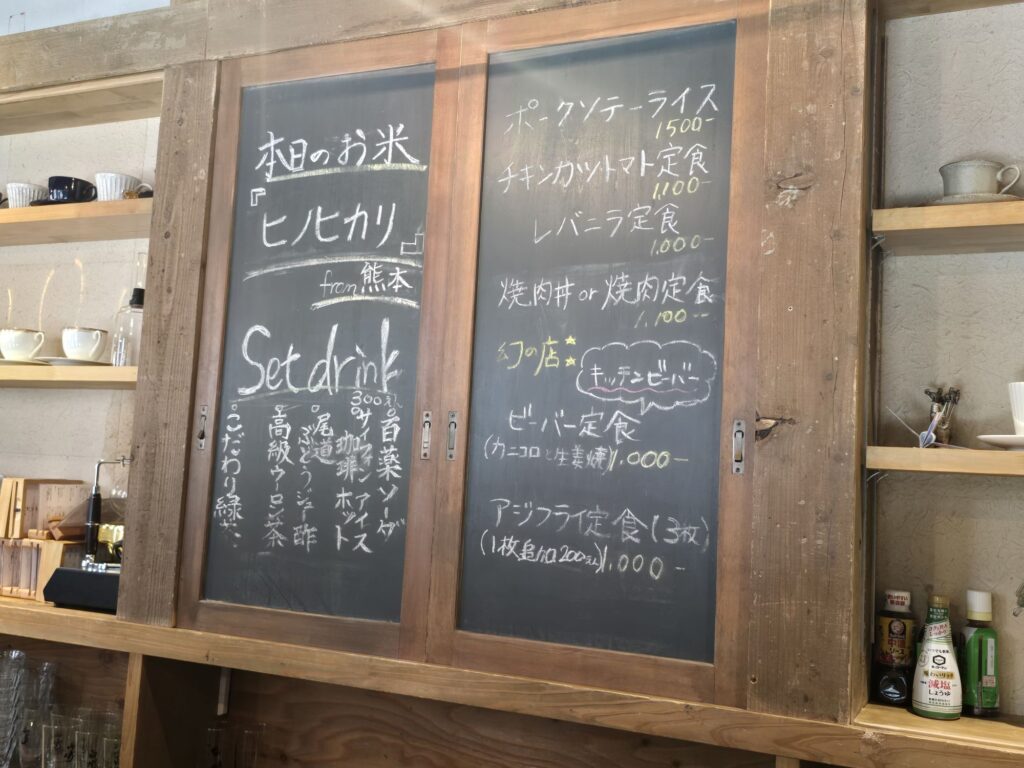 本日のお米
『
ヒノヒカリ
』
from 熊本
Set drink
300えん
・百薬ソーダ
・サイフォンアイス
珈琲ホット
・尾道
ぶどうジュース
酢
・高級ウーロン茶
・こだわり緑茶
ポークソテーライス
1500-
チキンカツトマト定食
1100-
レバニラ定食
1,000-
焼肉丼or焼肉定食
1,100-
幻の店
キッチンビーバー
ビーバー定食
(カニコロと生姜焼)1,000-
アジフライ定食(3枚)
(1枚追加200えん)1,000-
減塩
しょうゆ